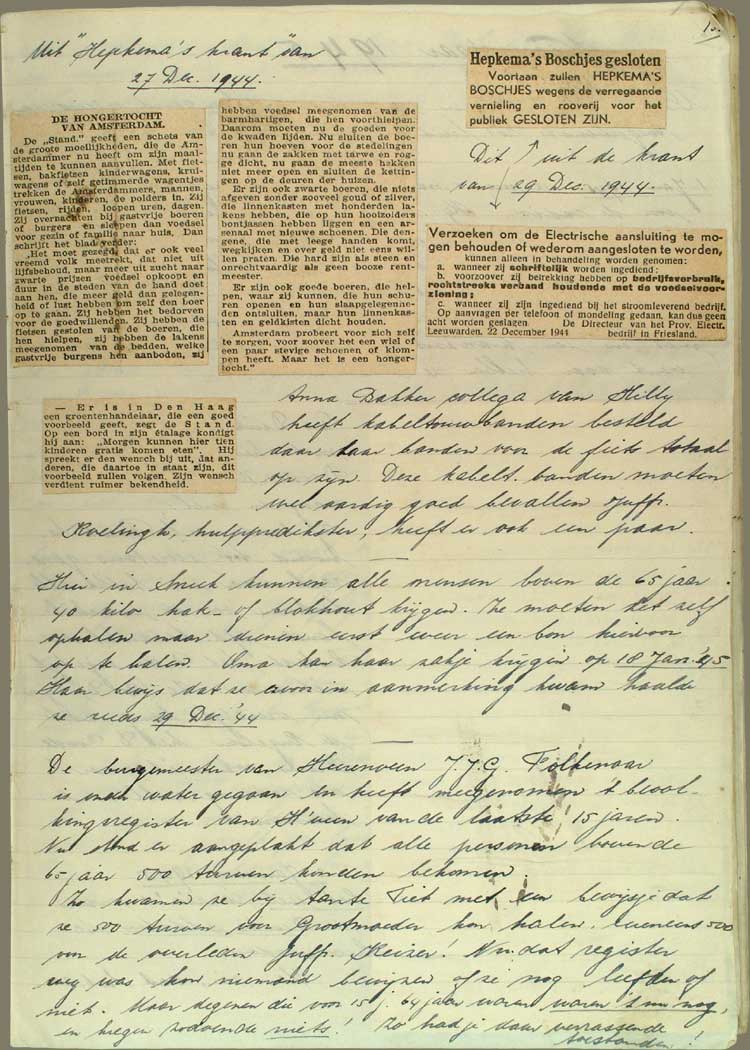 Uit "Hepkema's krant" van
27 Dec. 1944.
DE HONGERTOCHT
VAN AMSTERDAM.
De „Stand." geeft een schets van
de groote moeilijkheden, die de Am-
sterdammer nu heeft om zijn maal-
tijden te kunnen aanvullen. Met fiet-
sen, bakfietsen kinderwagens, krui-
wagens of zelf getimmerde wagentjes
trekken de Amsterdammers, mannen,
vrouwen, kinderen, de polders in. Zij
fietsen, rijden, loopen uren, dagen.
Zij overnachten bij gastvrije boeren
of burgers en sleepen dan voedsel
voor gezin of familie naar huis, Dan
schrijft het blad verder:
"Het moet gezegd, dat er ook veel
vreemd volk meetrekt, dat niet uit
lijfsbehoud, maar meer uit zucht naar
zwarte prijzen voedsel opkoopt en
duur in de steden van de hand doet
aan hen, die meer geld dan gelegen-
heid of lust hebben om zelf den boer
op te gaan. Zij hebben het bedorven
voor de goedwillenden. Zij hebben de
fietsen gestolen van de boeren, die
hen hielpen, zij hebben de lakens
meegenomen van de bedden, welke
gastvrije burgens hen aanboden, zij
hebben voedsel meegenomen van de
barmhartigen, die hen voorthielpen.
Daarom moeten nu de goeden voor
de kwaden lijden. Nu sluiten de boe-
ren hun hoeven voor de stedelingen
nu gaan de zakken met tarwe en rog-
ge dicht, nu gaan de meeste luiken
niet meer open en sluiten de kettin-
gen op de deuren der huizen.
Er zijn ook zwarte boeren, die niets
afgeven zonder zooveel goud of zilver,
die linnenkasten met honderden la-
kens hebben, die op hun hooizolders
bontjassen hebben liggen en een ar-
senaal met nieuwe schoenen. Die den-
gene, die met leege handen komt,
wegkijken en over geld niet eens wil-
len praten. Die hard zijn als steen en
onrechtvaardig als geen booze rent-
meester.
Er zijn ook goede boeren, die hel-
pen, waar zij kunnen, die hun schu-
ren openen en hun slaapgelegenhe-
den ontsluiten, maar hun linnenkas-
ten en geldkisten dicht houden.
Amsterdam probeert voor zich zelf
te zorgen, voor zoover het een wiel of
een paar stevige schoenen of klom-
pen heeft. Maar het is een honger-
tocht."
Hepkema's Boschjes gesloten
Voortaan zullen HEPKEMA'S
BOSCHJES wegens de verregaande
vernieling en rooverij voor het
publiek GESLOTEN ZIJN.
Dit ↑ uit de krant
van 29 Dec. 1944.
Verzoeken om de Electrische aansluiting te mo-
gen behouden of wederom aangesloten te worden,
kunnen alleen in behandeling worden genomen:
a. wanneer zij schriftelijk worden ingediend;
b. voorzoover zij betrekking hebben op bedrijfsverbruik,
rechtstreeks verband houdende met de voedselvoor-
ziening;
c. wanneer zij zijn ingediend bij het stroomleverend bedrijf.
Op aanvragen per telefoon of mondeling gedaan, kan dus geen
acht worden geslagen. De Directeur van het Prov. Electr.
Leeuwarden, 22 December 1944 bedrijf in Friesland.
— Er is in Den Haag
een groentenhandelaar, die een goed
voorbeeld geeft, zegt de Stand.
Op een bord in zijn étalage kondigt
hij aan: „Morgen kunnen hier tien
kinderen gratis komen eten". Hij
spreekt er den wensch bij uit, dat an-
deren, die daartoe in staat zijn, dit
voorbeeld zullen volgen. Zijn wensch
verdient ruimer bekendheid.
Anna Bakker collega van Hilly
heeft kabeltouwbanden besteld
daar haar banden voor de fiets totaal
op zijn. Deze kabelt. banden moeten
wel aardig goed bevallen Juffr.
Roelingh, hulppredikster, heeft er ook een paar.
Hier in Sneek kunnen alle mensen boven de 65 jaar
40 kilo hak- of blokhout krijgen. Ze moeten het zelf
ophalen maar dienen eerst weer een bon hiervoor
op te halen. Oma kan haar zakje krijgen op 18 Jan. '45
Haar bewijs dat ze ervoor in aanmerking kwam haalde
ze reeds 29 Dec. '44
De burgemeester van Heerenveen J.J.G. Falkenaar
is onder water gegaan en heeft meegenomen 't bevol-
kingsregister van H'veen van de laatste 15 jaren.
Nu stond er aangeplakt dat alle personen boven de
65 jaar 500 turven konden bekomen.
Zo kwamen ze bij tante Tiet met een bewijsje dat
ze 500 turven voor Grootmoeder kon halen, eveneens 500
voor de overleden Juffr. Keizer! Nu dat register
weg was kon niemand bewijzen of ze nog leefden of
niet. Maar degenen die voor 15 j. 64 jaar waren waren 't nu nog,
en kregen zodoende niets! Zo had je daar verrassende
toestanden!